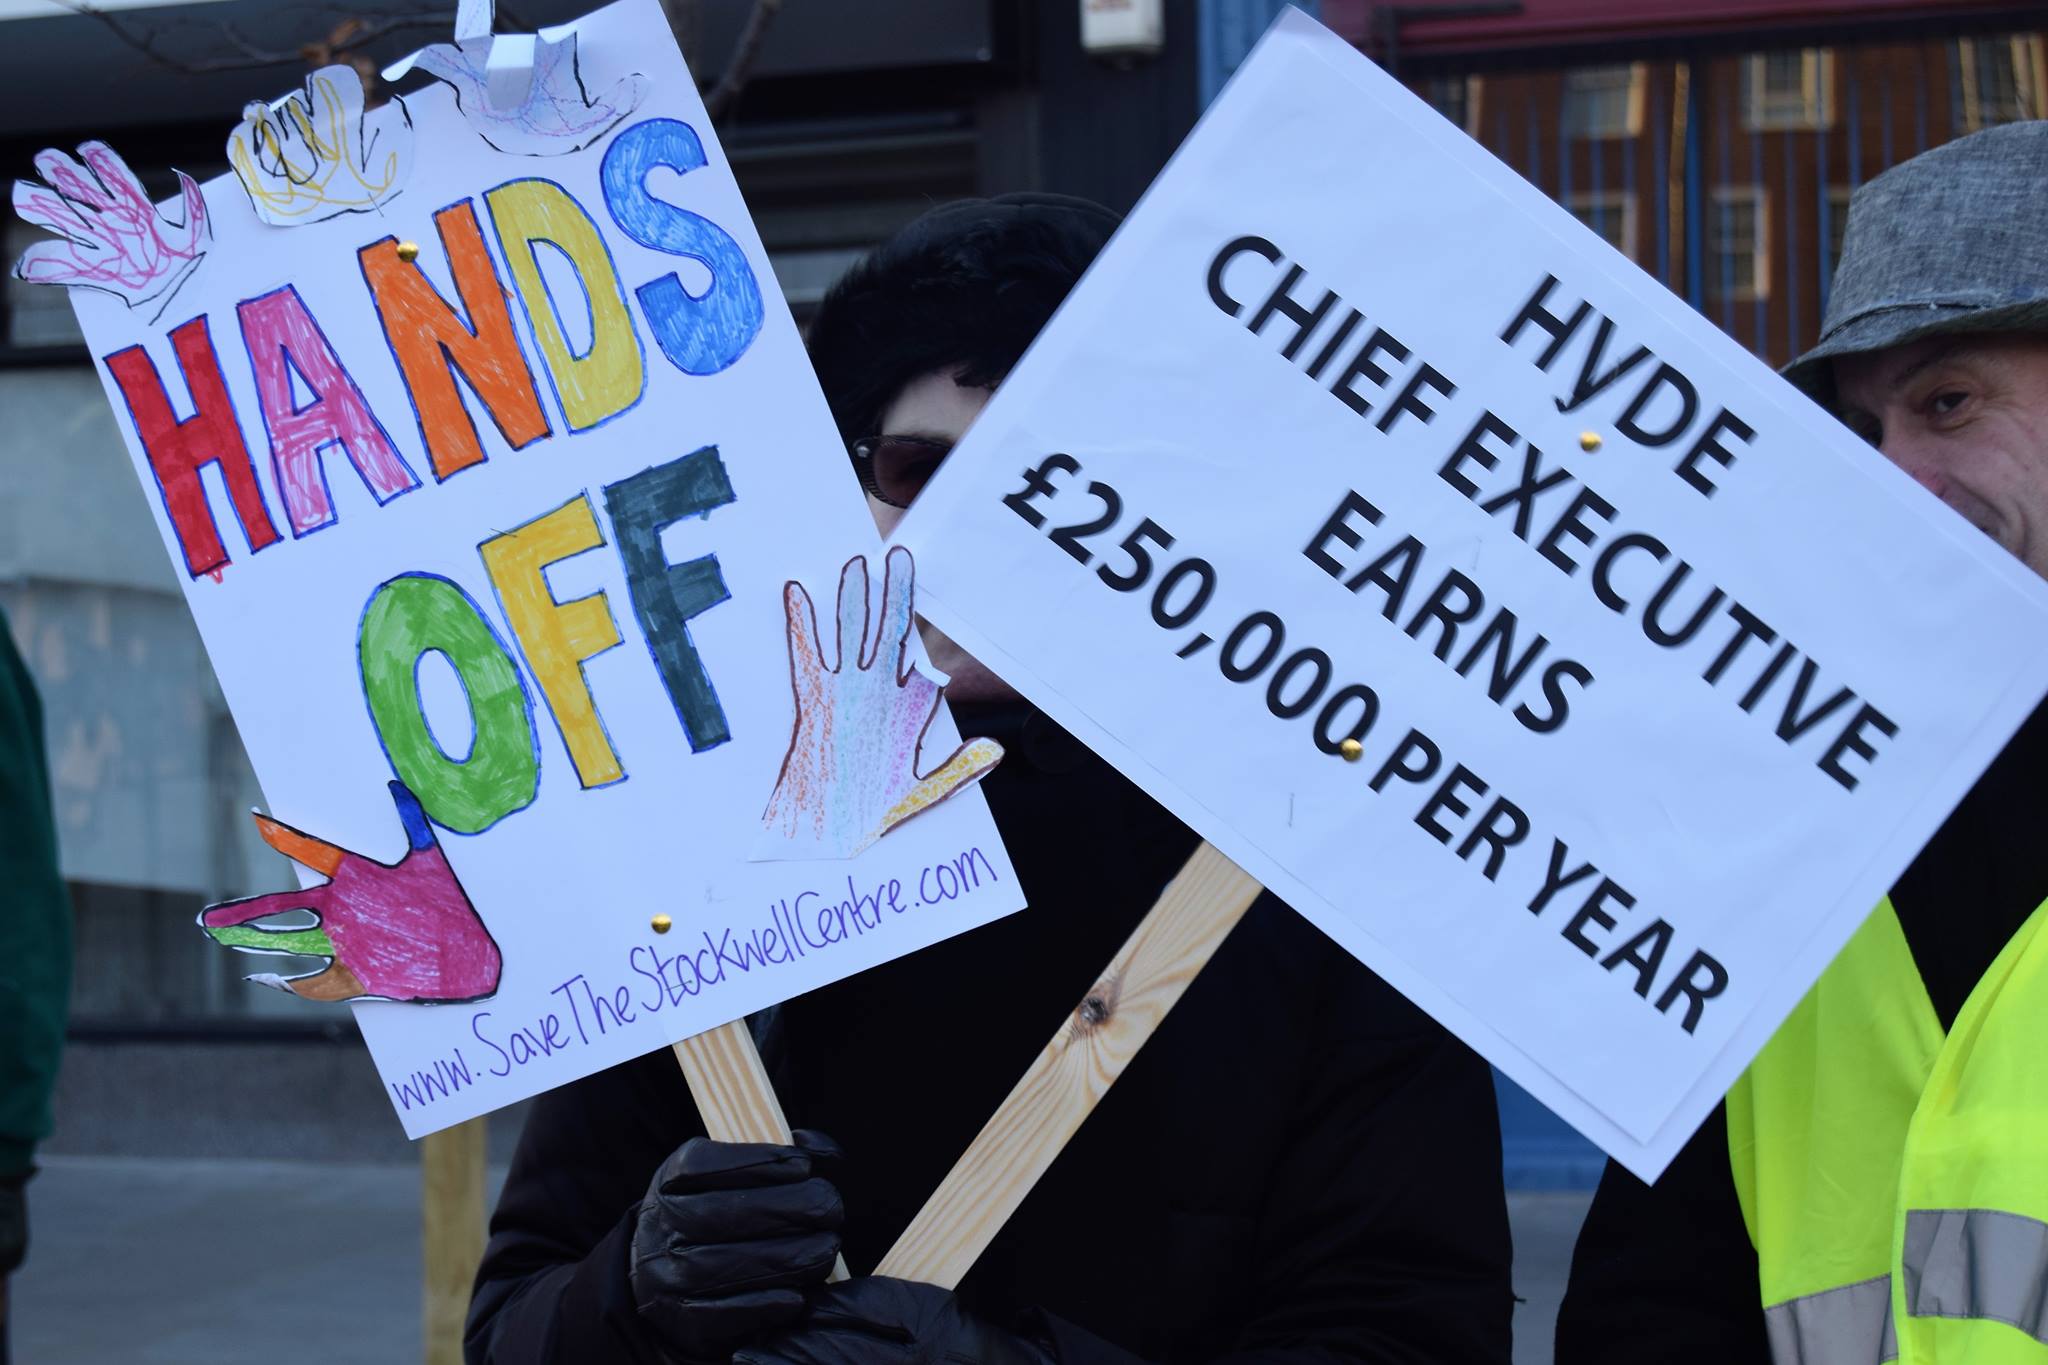 HANDS
OFF
www.SaveTheStockwellCentre.com
HYDE
CHIEF EXECUTIVE
EARNS
£250,000 PER YEAR